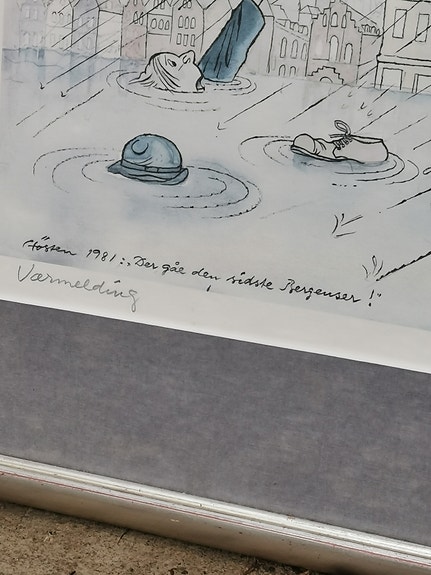 Høsten 1981: „Der gåe den sidste Bergenser!"
Værmelding